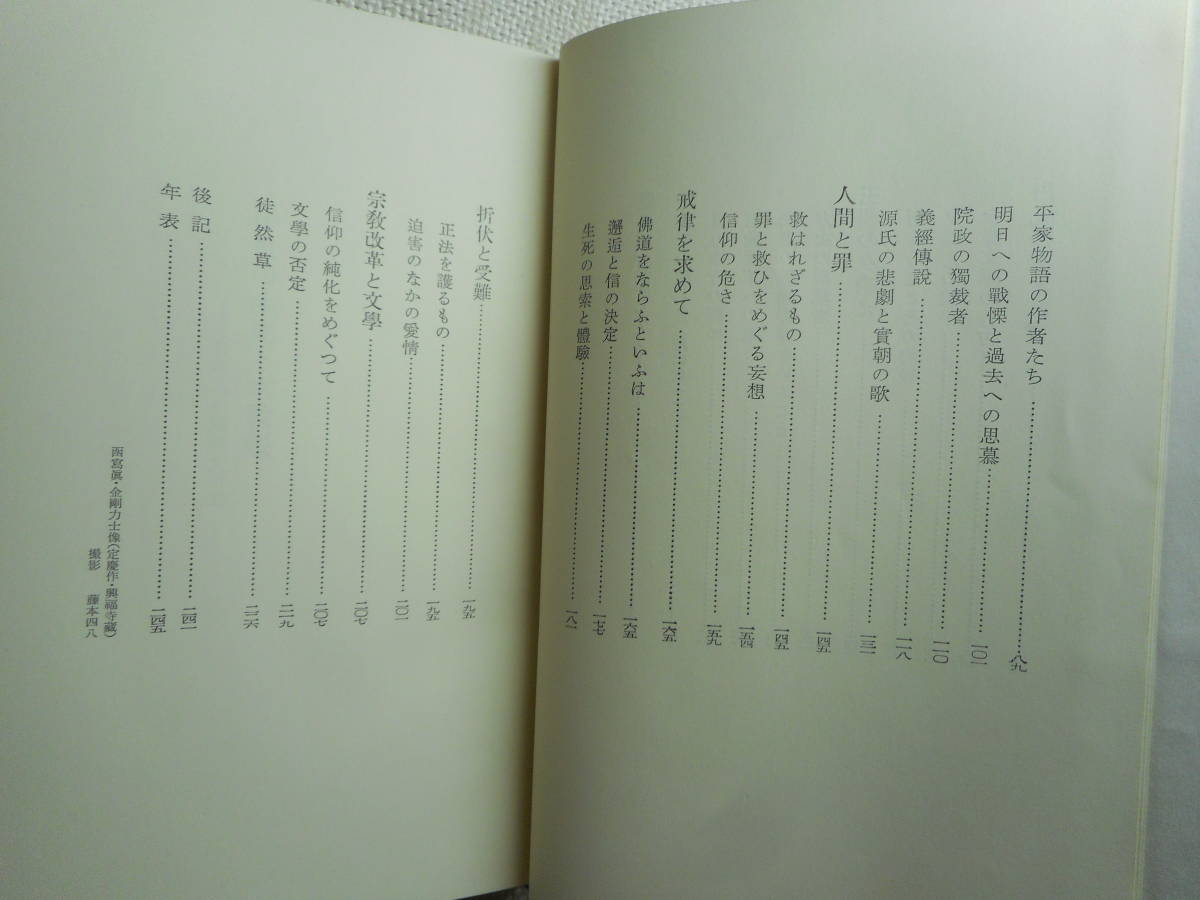 平家物語の作者たち……八九
明日への戰慄と過去への思慕……一〇一
院政の獨裁者……一一〇
義經傳說……一一八
源氏の悲劇と實朝の歌……一三一
人間と罪……一四五
救はれざるもの……一四五
罪と救ひをめぐる妄想……一五四
信仰の危さ……一五九
戒律を求めて……一六五
佛道をならふといふは……一六五
邂逅と信の決定……一七七
生死の思索と體驗……一八一
折伏と受難……一九五
正法を護るもの……一九五
迫害のなかの愛情……二〇一
宗教改革と文學……二〇七
信仰の純化をめぐつて……二〇七
文學の否定……二一九
徒然草……二二六
後記……二四一
年表……二四五
函寫眞・金剛力士像（定慶作・興福寺藏）
撮影　藤本四八